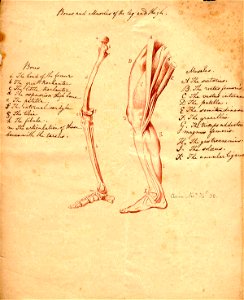 Bones and Muscles of the leg and thigh.
Bones
a. The head of the femur
b. The great trochanter.
c. The little trochanter.
d. The
e. The patella
f. The internal condyle.
g. The tibia
h. The fibula.
m. The articulation of these
bones with the tarsus.
Muscles.
A. The sartorius.
B. The rectus femoris
C. The vastus internus
D. The patella.
E. The semitendinosus
F. The gracilis
G. The triceps adductor
magnus femoris
H. The gastrocnemius
I. The soleus.
K. The annular ligament